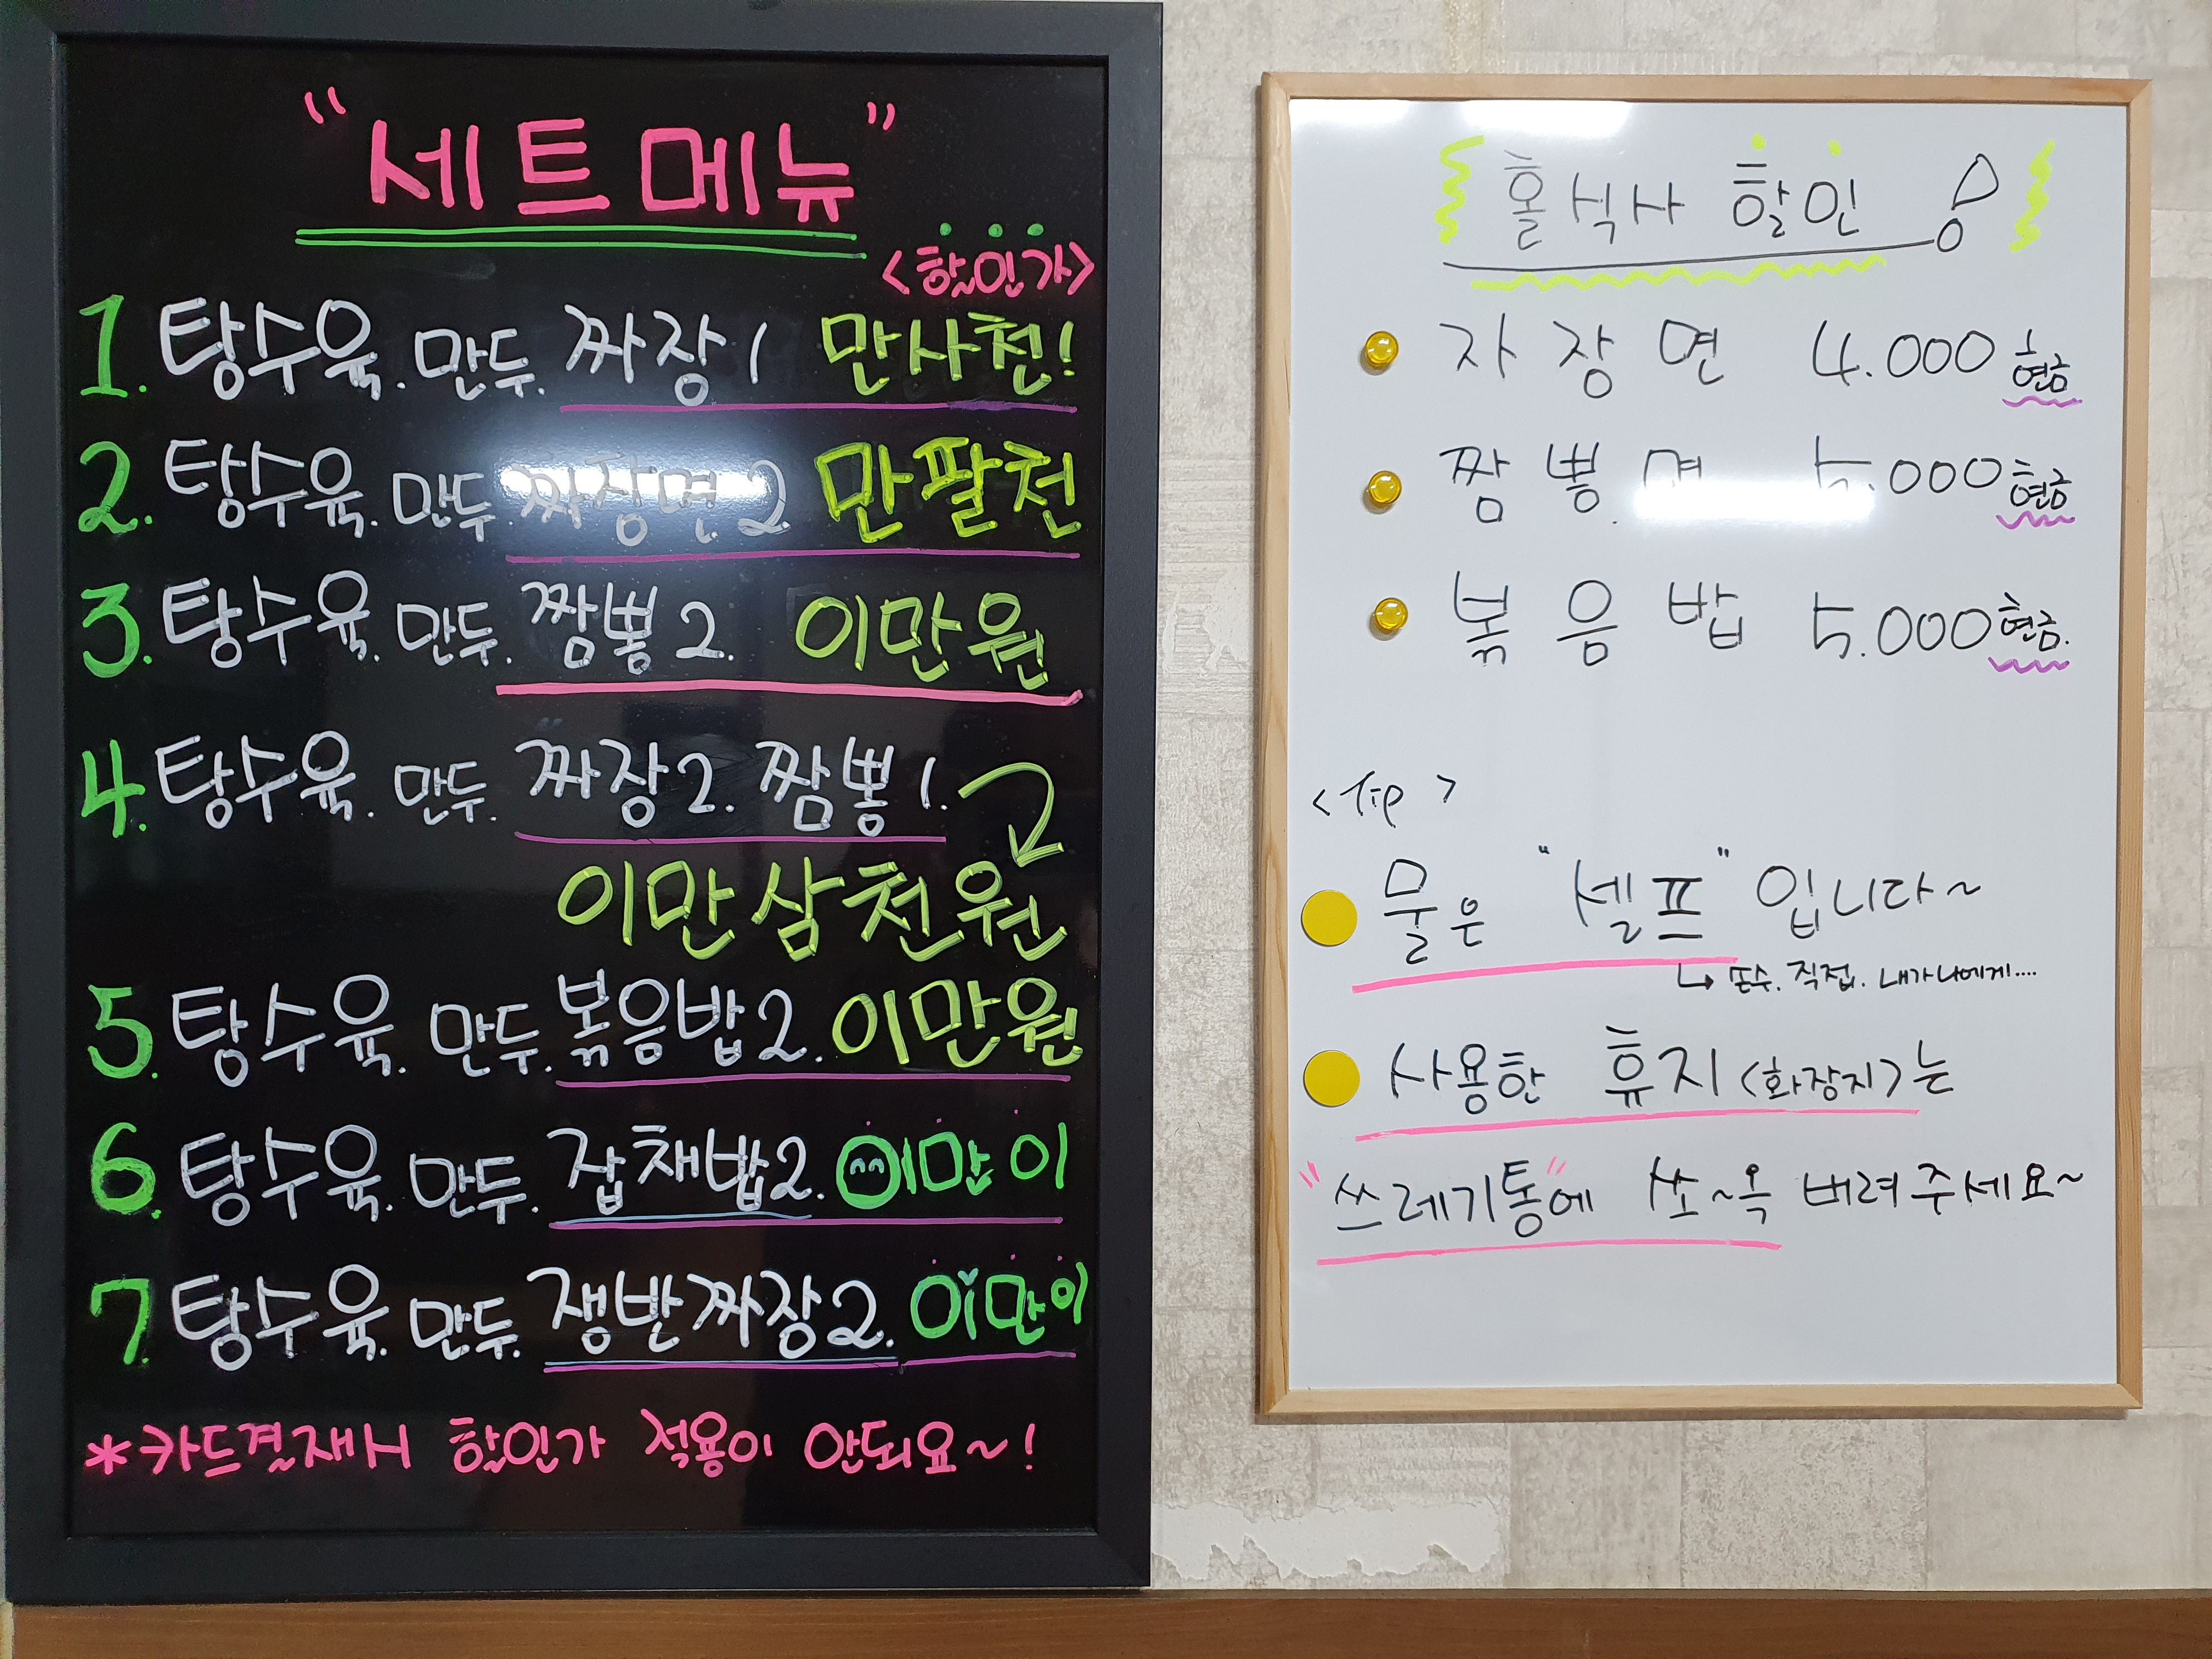 "세트메뉴"
<할인가>
1. 탕수육. 만두. 짜장1 만사천!
2. 탕수육. 만두. 짜장면. 2 만팔천
3. 탕수육. 만두. 짬뽕2. 이만원
4. 탕수육. 만두. 짜장2. 짬뽕1.
이만삼천원
5. 탕수육. 만두. 볶음밥2. 이만원
6. 탕수육. 만두. 잡채밥2. 이만이
7. 탕수육. 만두. 쟁반짜장2. 이만이
*카드결재시 할인가 적용이 안되요~!
홀식사 할인!
자장면 4.000 현금
짬뽕면 5.000 현금
볶음밥 5.000 현금.
<Tip>
물은 "셀프"입니다~
↳ 손수. 직접. 내가나에게....
사용한 휴지<화장지>는
"쓰레기통"에 쏘~옥 버려주세요~